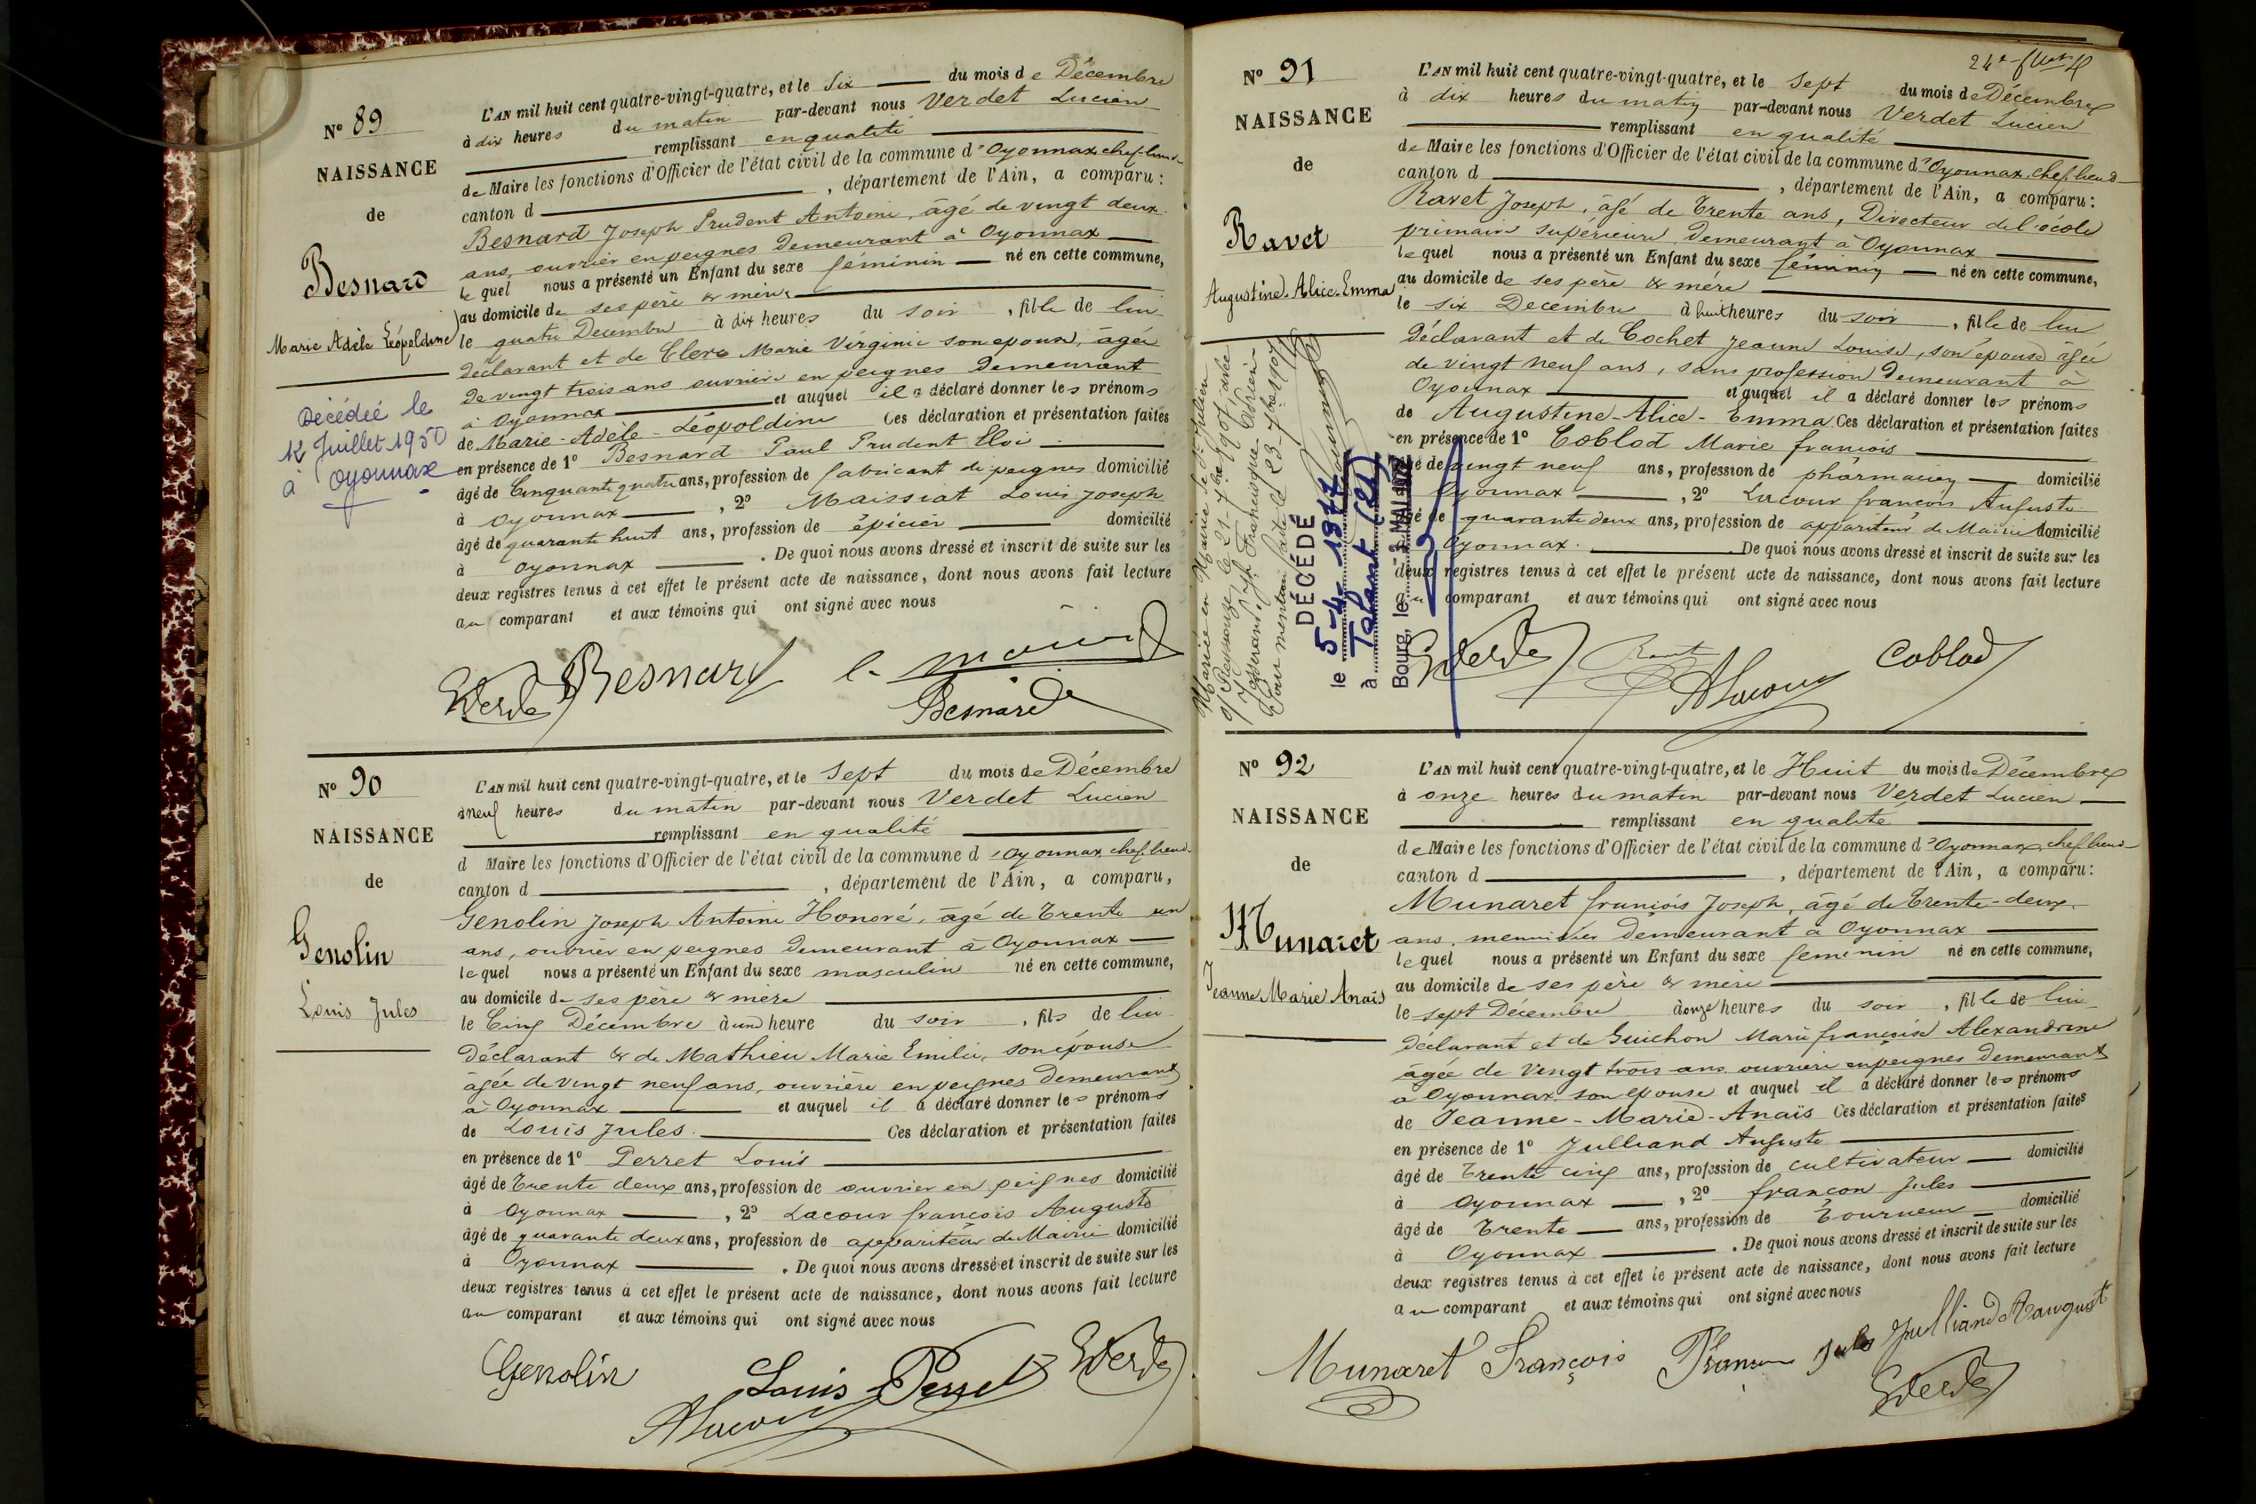 N° 89
NAISSANCE
de
Besnard
Marie Adèle Léopoldine
Décédée le
12 Juillet 1950
à Oyonnax
L'AN mil huit cent quatre-vingt-quatre, et le Six du mois de Décembre
à dix heures du matin par-devant nous Verdet Lucien
remplissant en qualité
de Maire les fonctions d'Officier de l'état civil de la commune d'Oyonnax, chef lieu de
canton d , département de l'Ain, a comparu:
Besnard Joseph Prudent Antoine, âgé de vingt deux
ans, ouvrier en peignes demeurant à Oyonnax
le quel nous a présenté un Enfant du sexe féminin né en cette commune,
au domicile de ses père & mère
le quatre Décembre à dix heures du soir, fille de lui
déclarant et de Clerc Marie Virginie son épouse, âgée
de vingt trois ans ouvrière en peignes demeurant
à Oyonnax et auquel il a déclaré donner les prénoms
de Marie-Adèle-Léopoldine Ces déclaration et présentation faites
en présence de 1° Besnard Paul Prudent Eloi
âgé de Cinquante quatre ans, profession de fabricant de peignes domicilié
à Oyonnax , 2° Maissiat Louis Joseph
âgé de quarante huit ans, profession de épicier domicilié
à Oyonnax . De quoi nous avons dressé et inscrit de suite sur les
deux registres tenus à cet effet le présent acte de naissance, dont nous avons fait lecture
au comparant et aux témoins qui ont signé avec nous
Verdet Besnard
Besnard
N° 90
NAISSANCE
de
Genolin
Louis Jules
L'AN mil huit cent quatre-vingt-quatre, et le Sept du mois de Décembre
à neuf heures du matin par-devant nous Verdet Lucien
remplissant en qualité
d Maire les fonctions d'Officier de l'état civil de la commune d'Oyonnax, chef lieu de
canton d , département de l'Ain, a comparu,
Genolin Joseph Antoine Honoré, âgé de Trente un
ans, ouvrier en peignes demeurant à Oyonnax
le quel nous a présenté un Enfant du sexe masculin né en cette commune,
au domicile de ses père & mère
le Cinq Décembre à une heure du soir, fils de lui
déclarant & de Mathieu Marie Emilie, son épouse
âgée de vingt neuf ans, ouvrière en peignes demeurant
à Oyonnax et auquel il a déclaré donner les prénoms
de Louis Jules. Ces déclaration et présentation faites
en présence de 1° Perret Louis
âgé de Trente deux ans, profession de ouvrier en peignes domicilié
à Oyonnax , 2° Lacour françois Auguste
âgé de quarante deux ans, profession de appariteur de Mairie domicilié
à Oyonnax . De quoi nous avons dressé et inscrit de suite sur les
deux registres tenus à cet effet le présent acte de naissance, dont nous avons fait lecture
au comparant et aux témoins qui ont signé avec nous
Genolin Louis Perret Verdet
ALacour
N° 91
NAISSANCE
de
Ravet
Augustine-Alice-Emma
Mariée en Mairie de St Julien
s/ Reyssouze le 21 7bre 1907 avec
Josserand Jph Francisque Adrien
Pour mention faite le 23 7bre 1907
DÉCÉDÉ
le 5-4-1977
à Talant (21)
Bourg, le - 3 MAI 1977
L'AN mil huit cent quatre-vingt-quatre, et le Sept du mois de Décembre
à dix heures du matin par-devant nous Verdet Lucien
remplissant en qualité
de Maire les fonctions d'Officier de l'état civil de la commune d'Oyonnax, chef lieu de
canton d , département de l'Ain, a comparu:
Ravet Joseph, âgé de Trente ans, Directeur de l'école
primaire supérieure, demeurant à Oyonnax
le quel nous a présenté un Enfant du sexe féminin né en cette commune,
au domicile de ses père & mère
le six Décembre à huit heures du soir, fille de lui
déclarant et de Cochet Jeanne Louise, son épouse âgée
de vingt neuf ans, sans profession demeurant à
Oyonnax et auquel il a déclaré donner les prénoms
de Augustine-Alice-Emma Ces déclaration et présentation faites
en présence de 1° Coblod Marie françois
âgé de vingt neuf ans, profession de pharmacien domicilié
Oyonnax , 2° Lacour françois Auguste
âgé de quarante deux ans, profession de appariteur de Mairie domicilié
Oyonnax. De quoi nous avons dressé et inscrit de suite sur les
deux registres tenus à cet effet le présent acte de naissance, dont nous avons fait lecture
au comparant et aux témoins qui ont signé avec nous
Verdet Ravet Coblod
ALacour
N° 92
NAISSANCE
de
Munaret
Jeanne Marie Anaïs
L'AN mil huit cent quatre-vingt-quatre, et le Huit du mois de Décembre
à onze heures du matin par-devant nous Verdet Lucien
remplissant en qualité
de Maire les fonctions d'Officier de l'état civil de la commune d'Oyonnax, chef lieu de
canton d , département de l'Ain, a comparu:
Munaret françois Joseph, âgé de Trente-deux
ans, menuisier demeurant à Oyonnax
le quel nous a présenté un Enfant du sexe féminin né en cette commune,
au domicile de ses père & mère
le sept Décembre à onze heures du soir, fille de lui
déclarant et de Guichon Marie françoise Alexandrine
âgée de Vingt trois ans ouvrière en peignes demeurant
à Oyonnax son épouse et auquel il a déclaré donner les prénoms
de Jeanne-Marie-Anaïs Ces déclaration et présentation faites
en présence de 1° Julliand Auguste
âgé de Trente cinq ans, profession de cultivateur domicilié
à Oyonnax , 2° françon Jules
âgé de Trente ans, profession de Tourneur domicilié
à Oyonnax . De quoi nous avons dressé et inscrit de suite sur les
deux registres tenus à cet effet le présent acte de naissance, dont nous avons fait lecture
au comparant et aux témoins qui ont signé avec nous
Munaret François Jules Julliand August
Verdet